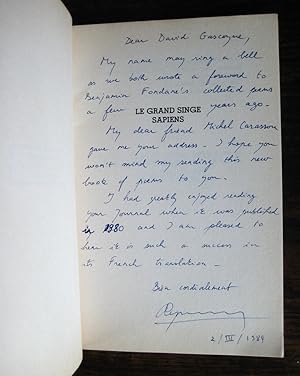 Dear David Gascoyne,
My name may ring a bell
as we both wrote a foreword to
Benjamin Fondane's collected poems
a few years ago.
LE GRAND SINGE
SAPIENS
My dear friend Michel Carassou
gave me your address - I hope you
won't mind my sending this new
book of poems to you.
I had greatly enjoyed reading
your Journal when it was published
in 1980 and I am pleased to
hear it is such a success in
its French translation -
Bien cordialement
2/III/1984